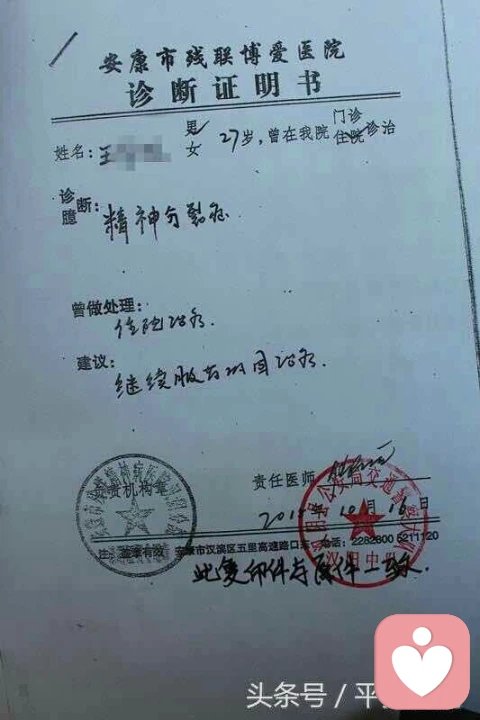 安康市残联博爱医院
诊断证明书
姓名: 王 男 女 27岁,曾在我院 门诊 住院 诊治
诊 断: 臆
精神分裂症
曾做处理:
住院治疗.
建议:
继续服药巩固治疗.
责任医师
10月16日
注: 盖章有效 安康市汉滨区五里高速路口 电话: 2282800 5211120
此复印件与原件一致.
头条号 / 平